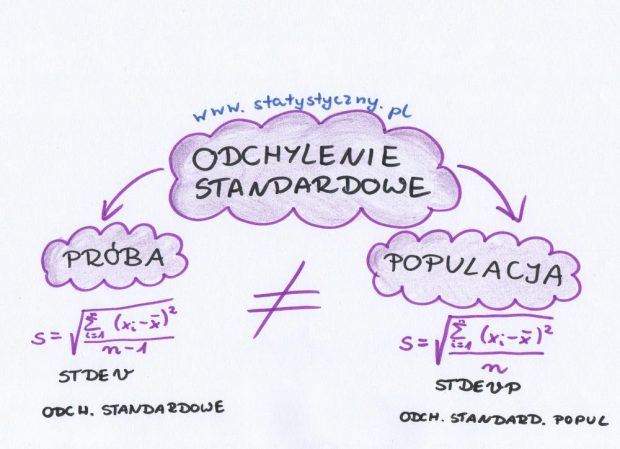 www.statystyczny.pl
ODCHYLENIE
STANDARDOWE
PRÓBA
POPULACJA
≠
s = √(∑ⁿᵢ₌₁ (xᵢ-x̄)² / n-1)
STDEV
ODCH. STANDARDOWE
s = √(∑ⁿᵢ₌₁ (xᵢ-x̄)² / n)
STDEVP
ODCH. STANDARD. POPUL